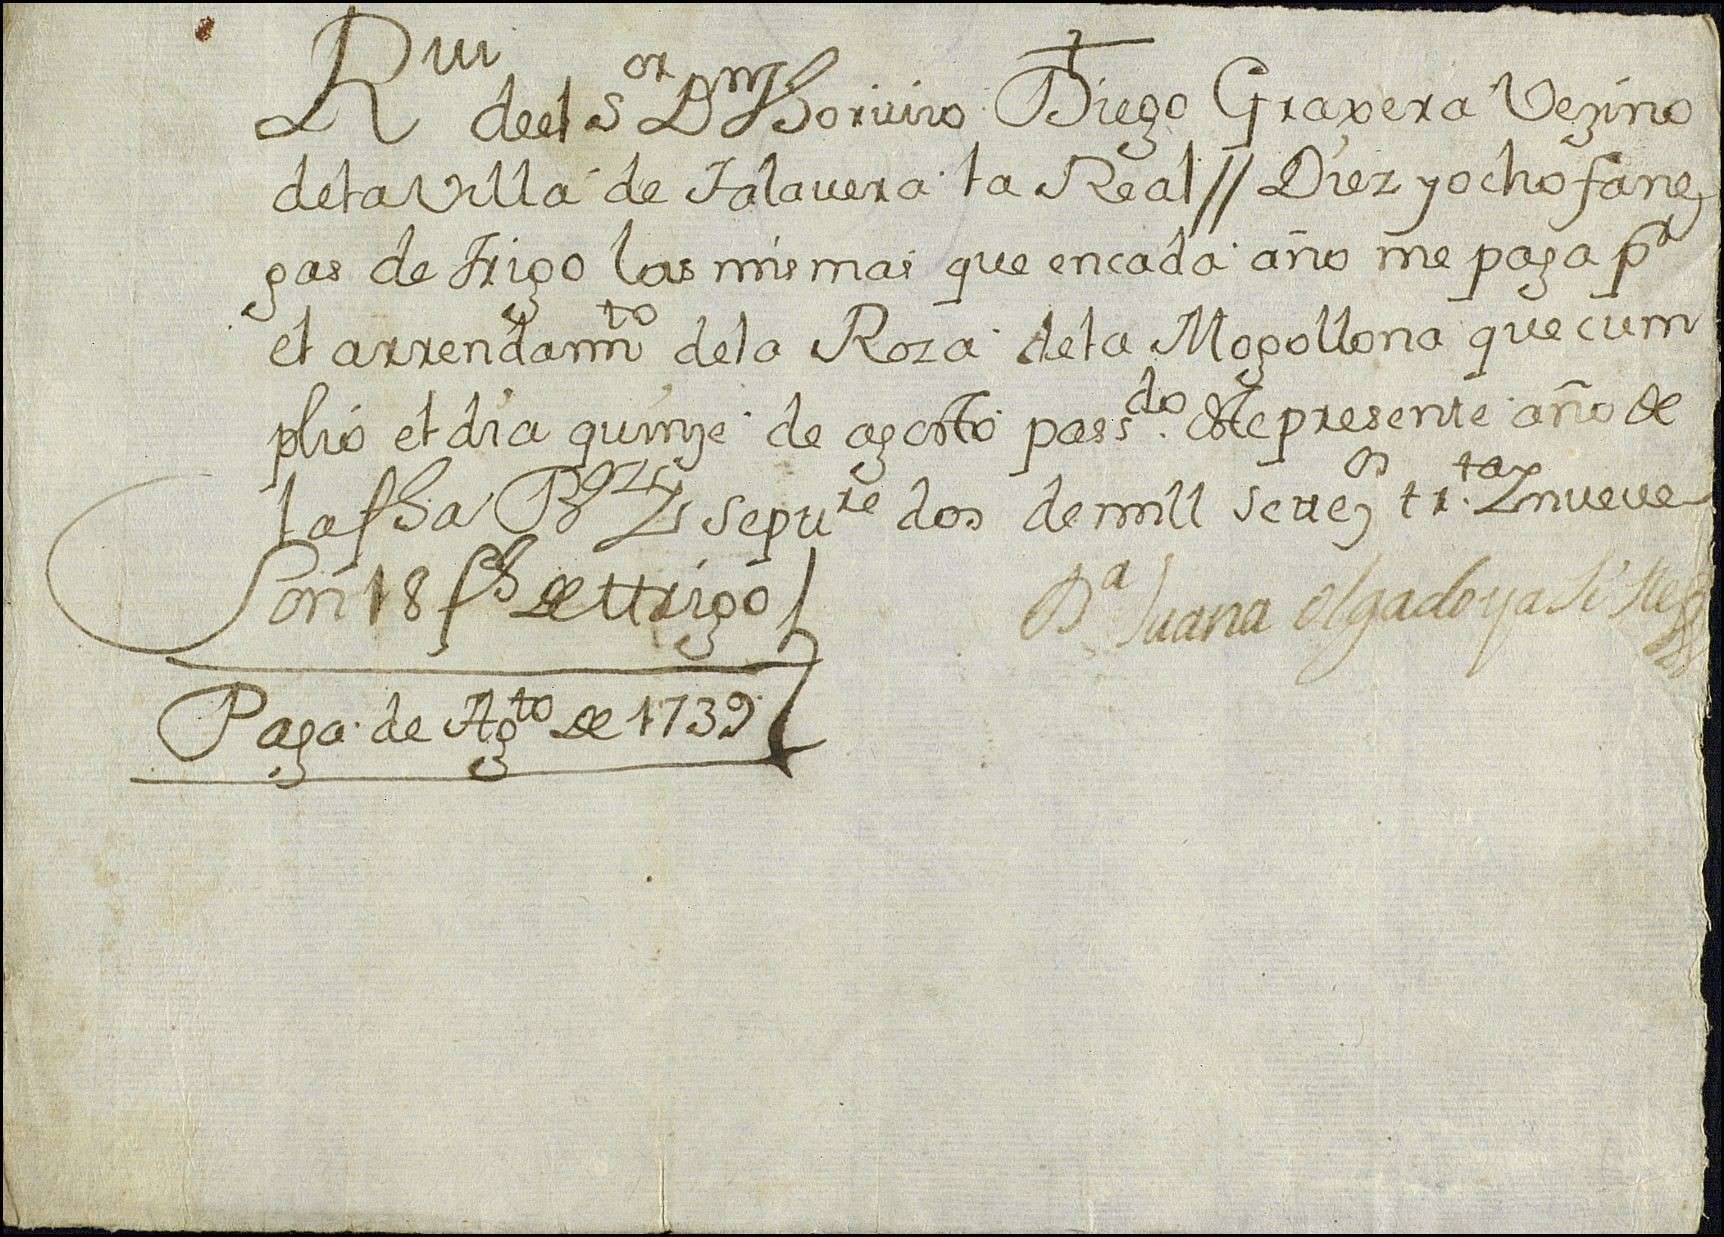 Rui deel Sor Dn Thoriuio Diego Graxera Vezino
de la Villa de Talauera la Real // Diez y ocho fane
gas de Trigo las mismas que en cada año me paga pr
el arrendammto de la Roza de la Mogollona que cum
plió el dia quinze de agosto passdo deste presente año de
la fha septre dos de mill setteos trta y nueve
Son 18 fs de ttrigo
Da Juana olgado
Paga de Agto de 1739